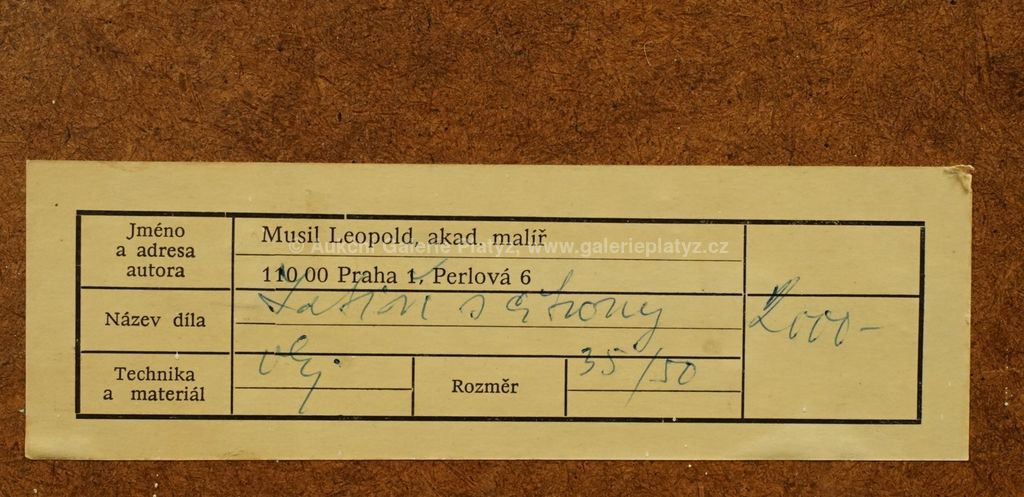 Jméno
a adresa
autora
Musil Leopold, akad. malíř
© Aukční Galerie Platýz, www.galerieplatyz.cz
110 00 Praha 1, Perlová 6
Název díla
Zátiší s citrony
2000-
Technika
a materiál
olej
Rozměr
35/50